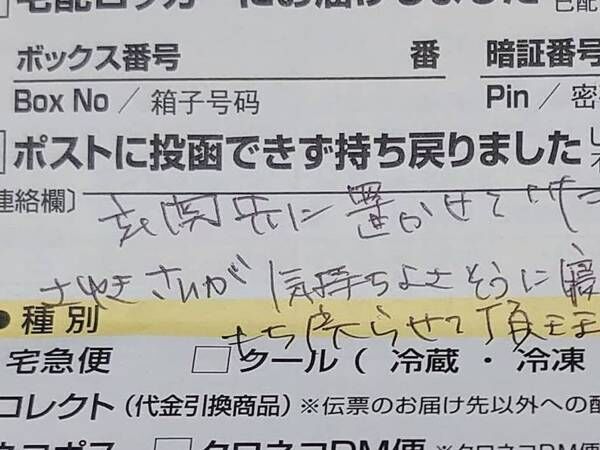 宅配ロッカーにお届けしました 已配
ボックス番号 番 暗証番号
Box No / 箱子号码 Pin / 密
ポストに投函できず持ち戻りました
連絡欄〕
玄関先に置かせて
気持ちよさそうに寝
● 種別
もち戻らせて頂きま
宅急便 □ クール ( 冷蔵 ・ 冷凍
コレクト (代金引換商品) ※伝票のお届け先以外への配
ネコポス □ クロネコDM便 ※クロネコDM便